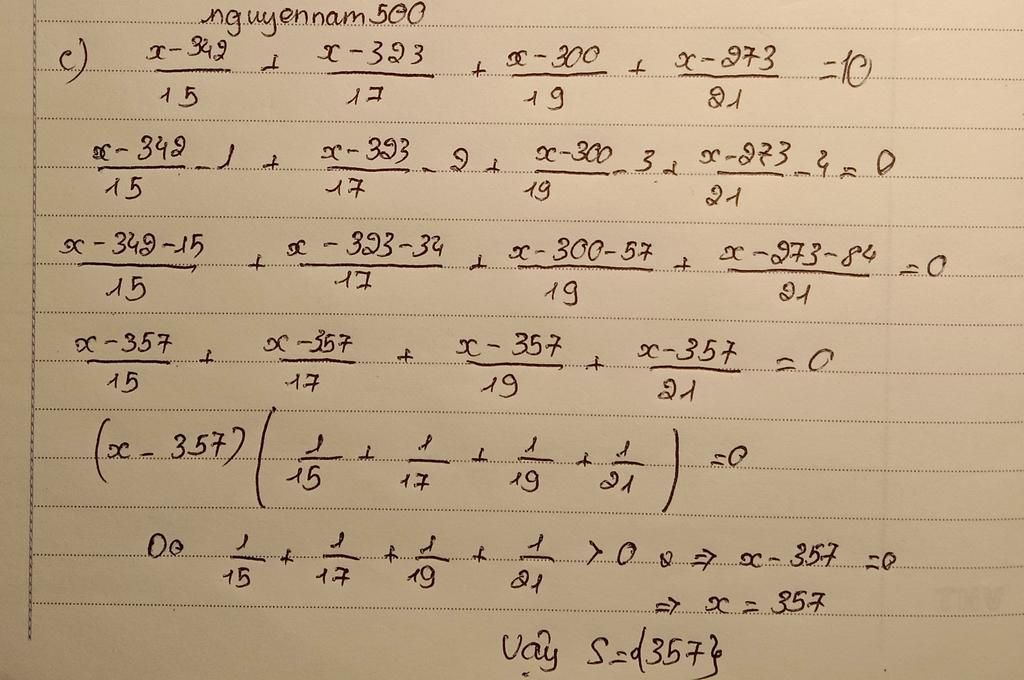 nguyennam500
c) \frac{x-342}{15} + \frac{x-323}{17} + \frac{x-300}{19} + \frac{x-273}{21} = 10
\frac{x-342}{15} - 1 + \frac{x-323}{17} - 2 + \frac{x-300}{19} - 3 + \frac{x-273}{21} - 4 = 0
\frac{x-342-15}{15} + \frac{x-323-34}{17} + \frac{x-300-57}{19} + \frac{x-273-84}{21} = 0
\frac{x-357}{15} + \frac{x-357}{17} + \frac{x-357}{19} + \frac{x-357}{21} = 0
(x-357)(\frac{1}{15} + \frac{1}{17} + \frac{1}{19} + \frac{1}{21}) = 0
Do \frac{1}{15} + \frac{1}{17} + \frac{1}{19} + \frac{1}{21} > 0 ⇒ x-357 = 0
⇒ x = 357
Vậy S={357}